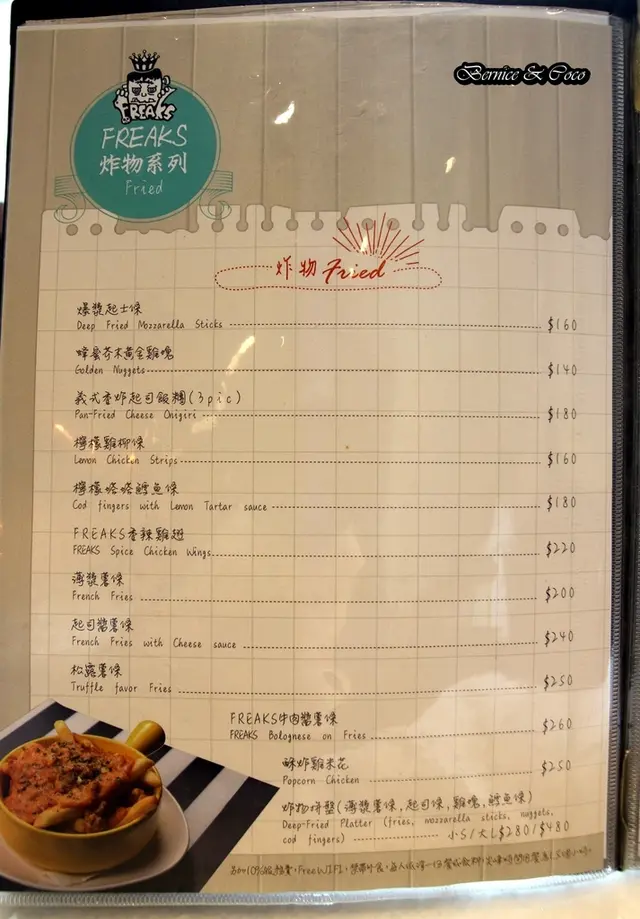 Bernice & Coco
FREAKS
FREAKS
炸物系列
Fried
炸物 Fried
爆漿起士條
Deep Fried Mozzarella Sticks $160
蜂蜜芥末黃金雞塊
Golden Nuggets $140
義式香炸起司飯糰(3pic)
Pan-Fried Cheese Onigiri $180
檸檬雞柳條
Lemon Chicken Strips $160
檸檬塔塔鱈魚條
Cod fingers with Lemon Tartar sauce $180
FREAKS香辣雞翅
FREAKS Spice Chicken Wings $220
薄漿薯條
French Fries $200
起司醬薯條
French Fries with Cheese sauce $240
松露薯條
Truffle favor Fries $250
FREAKS牛肉醬薯條
FREAKS Bolognese on Fries $260
酥炸雞米花
Popcorn Chicken $250
炸物拼盤(薄漿薯條,起司條,雞塊,鱈魚條)
Deep-Fried Platter (fries, mozzarella sticks, nuggets,
cod fingers) 小S/大L $280/$480
另加10%服務費,Free WIFI,禁帶外食,每人低消一份餐或飲料